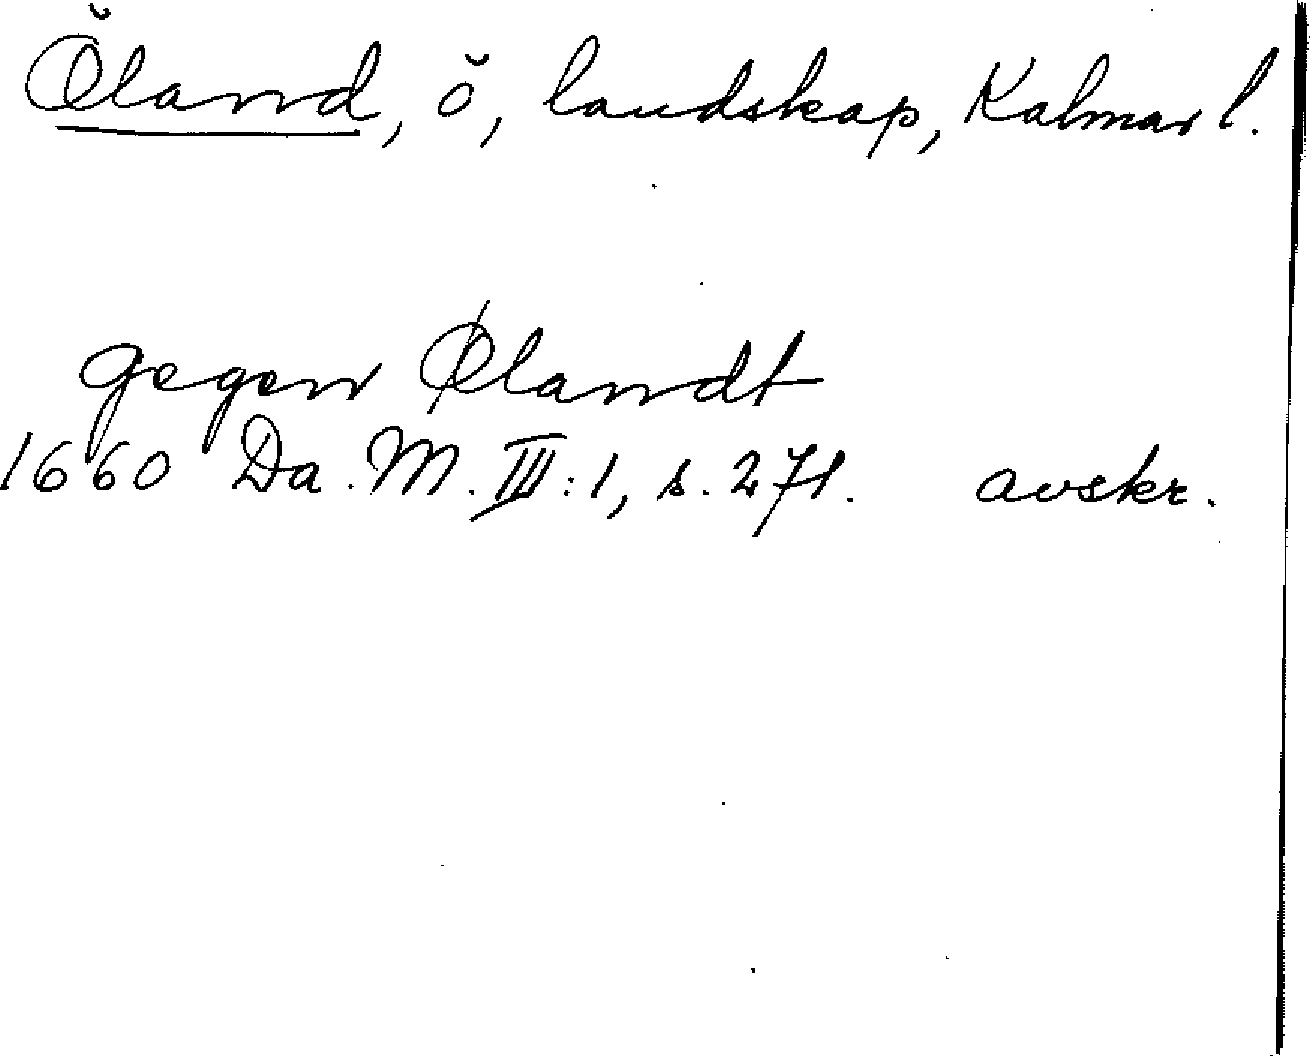 Öland, ö, landskap, Kalmar l.
gegen Ølandt
1660 Da. M. III:1, s. 271. avskr.